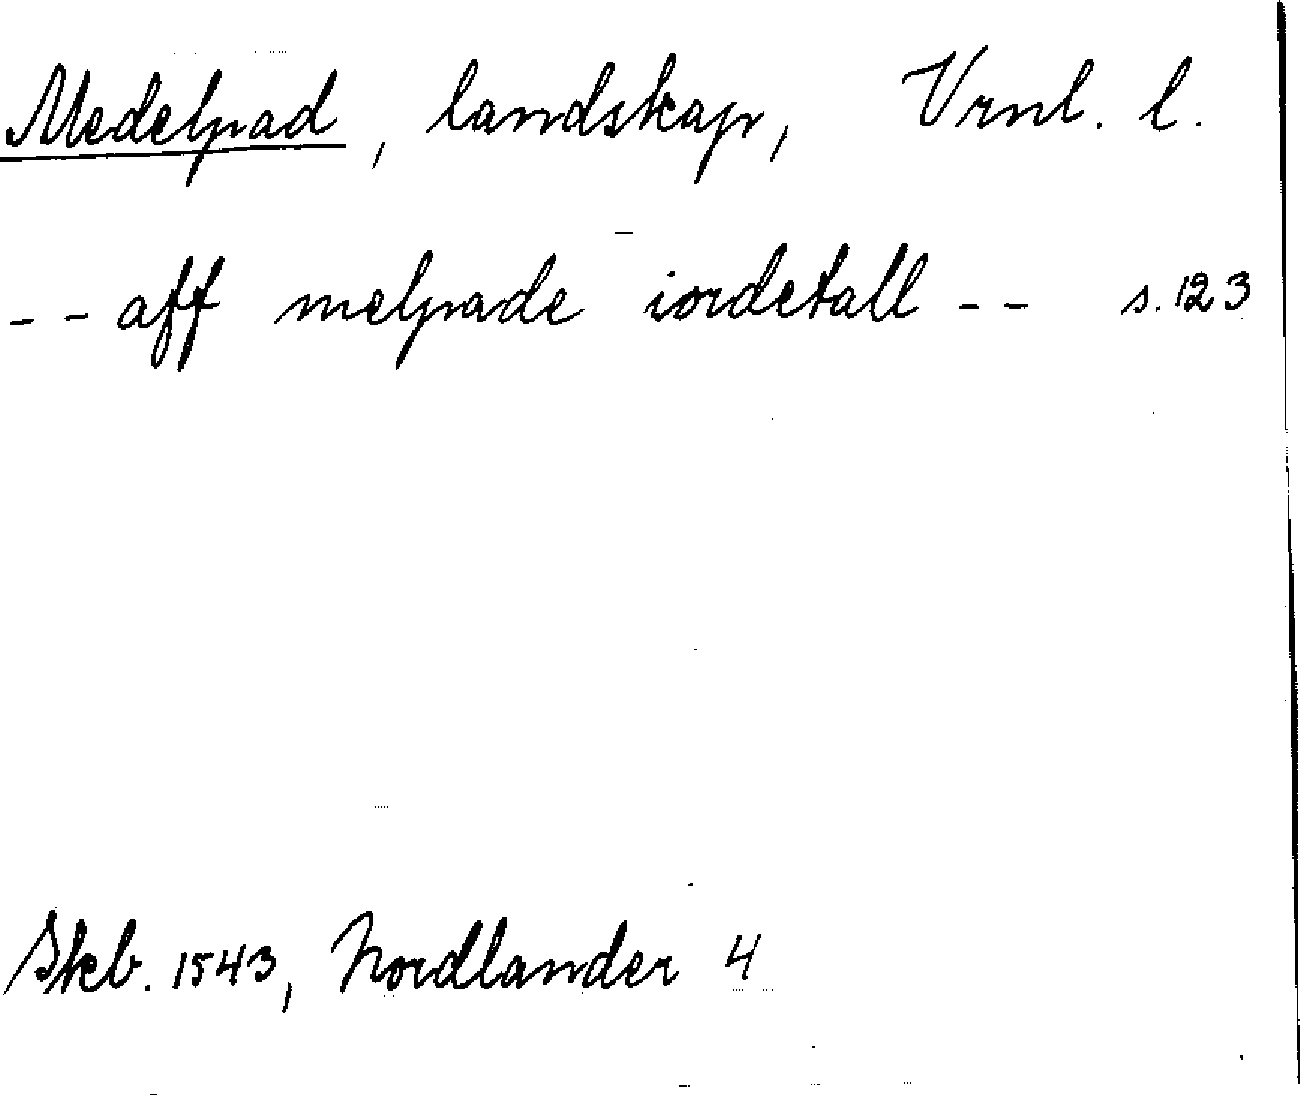 Medelpad, landskap, Vrnl. l.
- - aff melpade iordetall - - s. 123
Skb. 1543, Nordlander 4